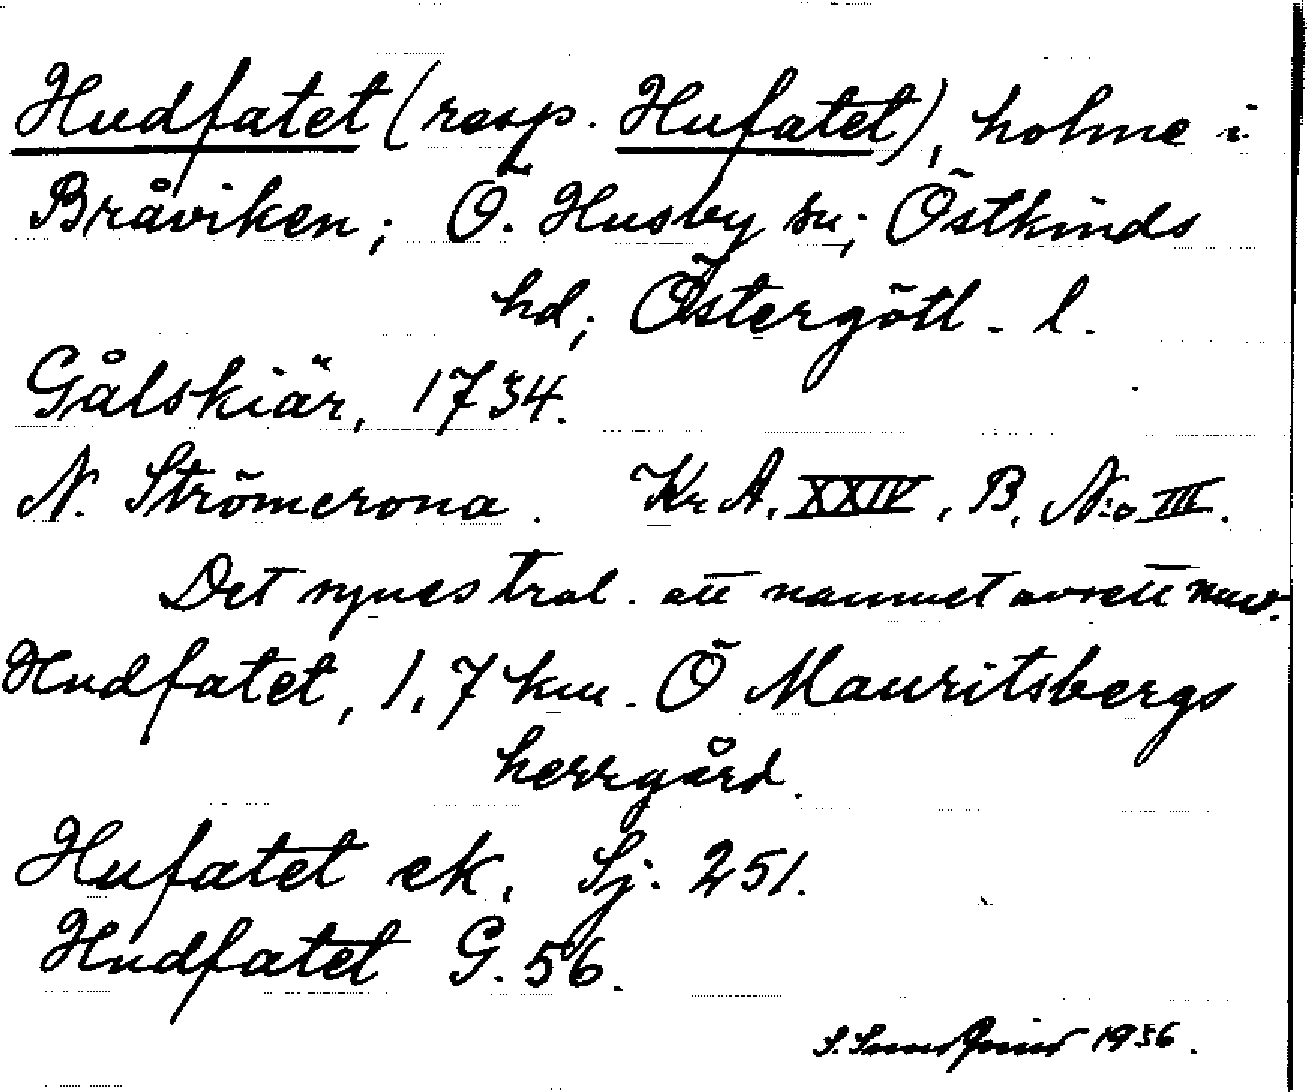 Hudfatet (resp. Hufatet), holme i
Bråviken; Ö. Husby sn; Östkinds
hd; Östergötl. l.
Gålskiär, 1734.
N. Strömerona. Kr. A. XXIV, B, N:o III.
Det synes trol. att namnet avsett nuv.
Hudfatet, 1,7 km. Ö Mauritsbergs
herrgård.
Hufatet ek. Sj. 251.
Hudfatet G. 56.
1936.